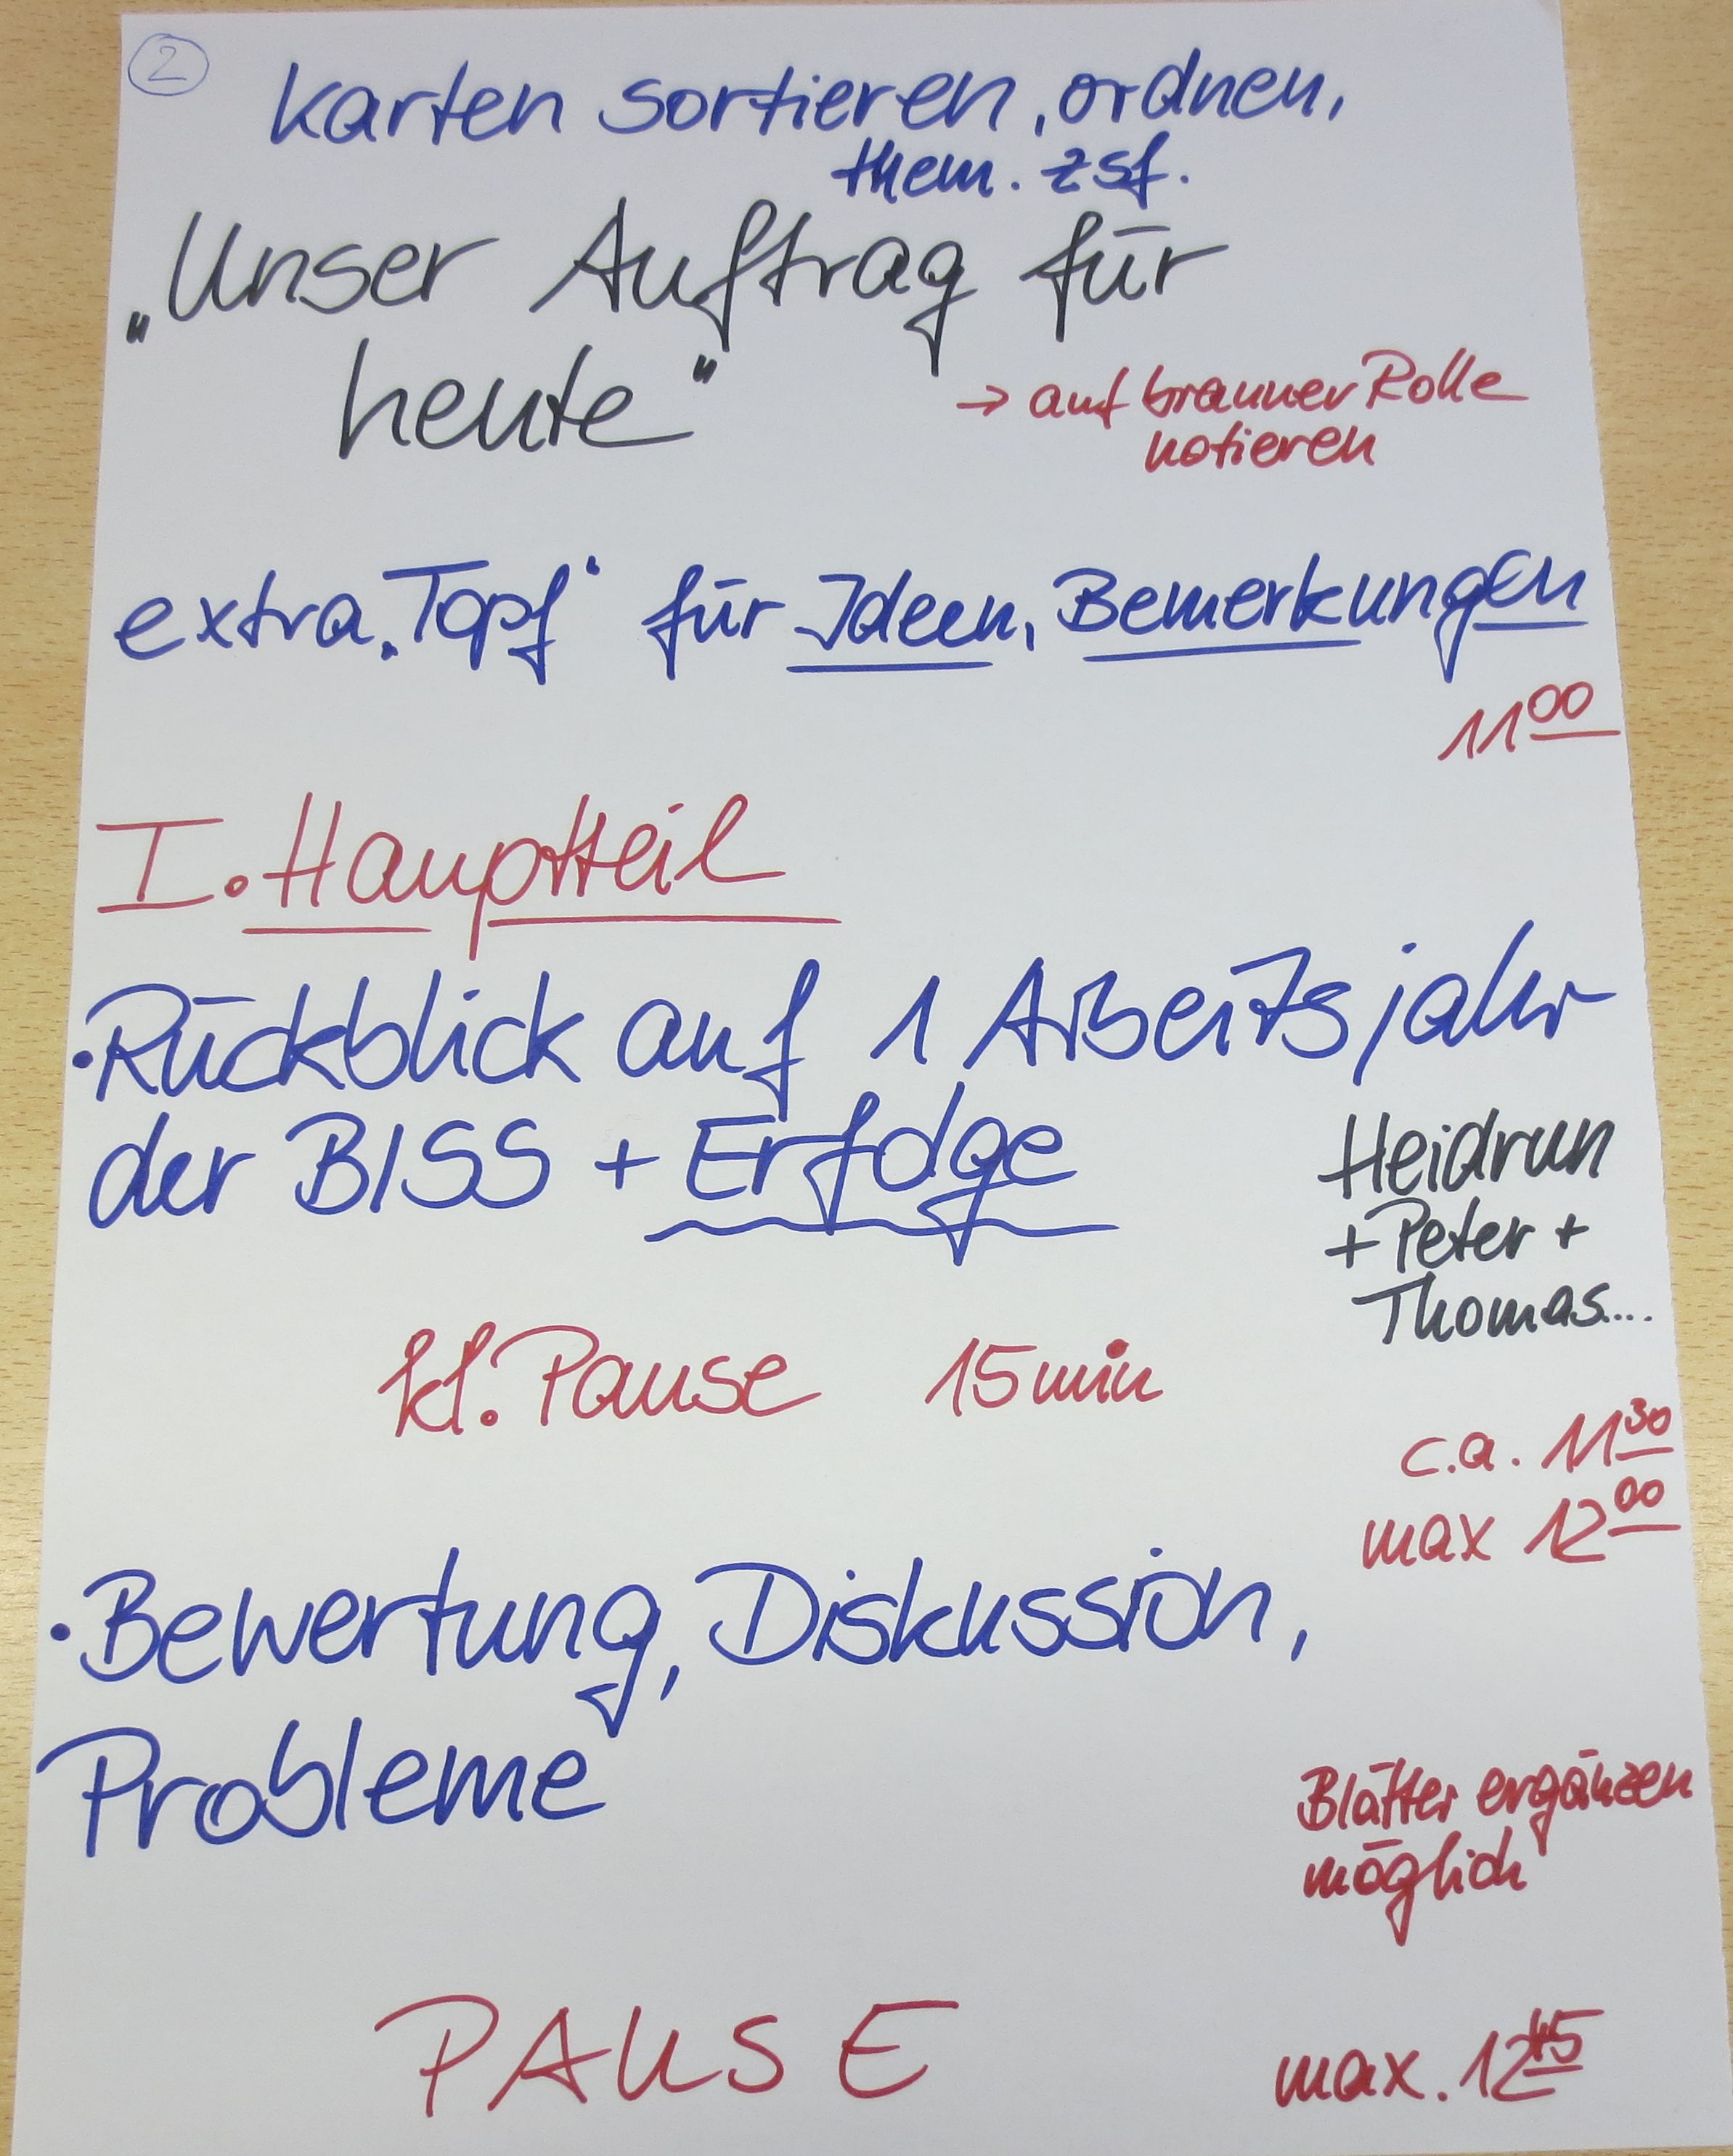 2
Karten sortieren, ordnen,
them. zsf.
„Unser Auftrag für
heute"
→ auf brauner Rolle
notieren
extra „Topf" für Ideen, Bemerkungen
11 00
I. Hauptteil
• Rückblick auf 1 Arbeitsjahr
der BISS + Erfolge
Heidrun
+ Peter +
Thomas...
kl. Pause 15 min
c.a. 11 30
max 12 00
• Bewertung, Diskussion,
Probleme
Blätter ergänzen
möglich
PAUSE max. 12 45